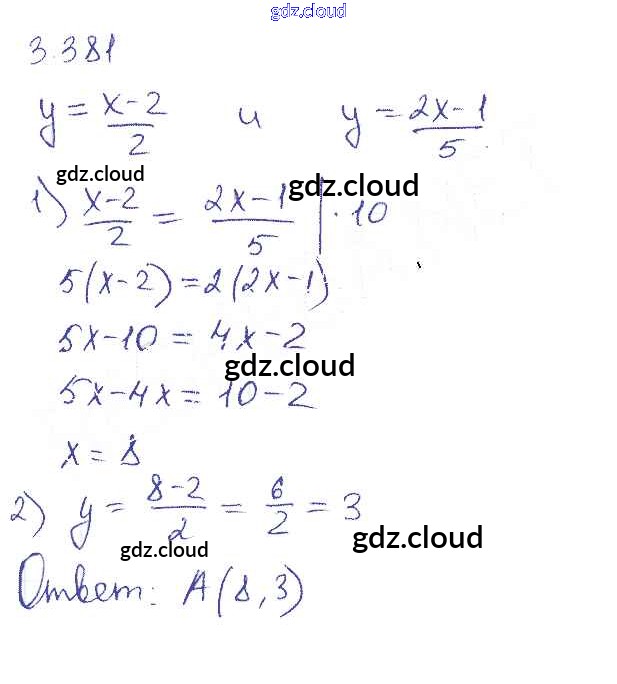 gdz.cloud
3.381
y = (x-2)/2 и y = (2x-1)/5.
gdz.cloud gdz.cloud
1) (x-2)/2 = (2x-1)/5 | · 10
5(x-2) = 2(2x-1)
5x-10 = 4x-2
gdz.cloud
5x-4x = 10-2
x = 8
2) y = (8-2)/2 = 6/2 = 3
gdz.cloud gdz.cloud
Ответ: A(8,3)